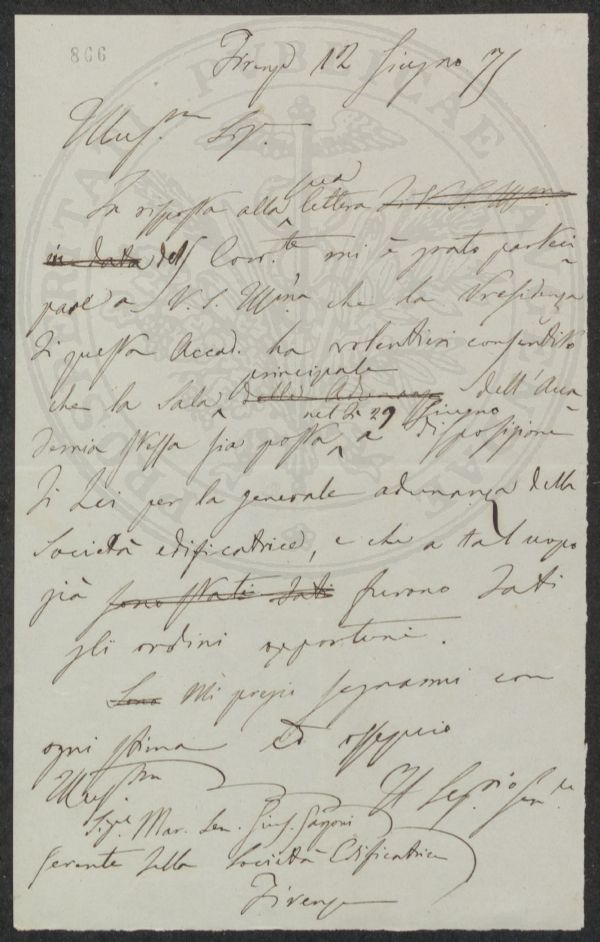 866
Firenze 12 Giugno 75
Illus.mo Sig.
In risposta alla sua lettera di V. S. Illma
in data del 5 Corr.te mi è grato parteci
pare a V. S. Ill.ma che la Presidenza
di questa Accad. ha volentieri consentito
che la Sala principale delle Adunanze dell'Acca
demia stessa sia posta nel dì 29 Giugno a disposizione
di Lei per la generale adunanza della
Società edificatrice, e che a tal uopo
già sono stati dati furono dati
gli ordini opportuni.
Sono Mi pregio segnarmi con
ogni stima ed ossequio
Illus.mo
Sig.re Mar. Sen. Gius. Garzoni
Il Seg.rio Gen.le
Gerente della Società Edificatrice
Firenze